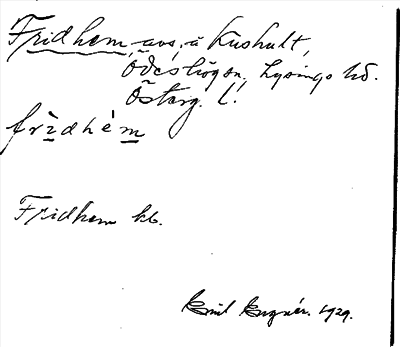 Fridhem, avs. å Kushult,
Ödeshögs sn. Lysings hd.
Österg. l.
frìdhém
Fridhem kb.
Emil 1929.